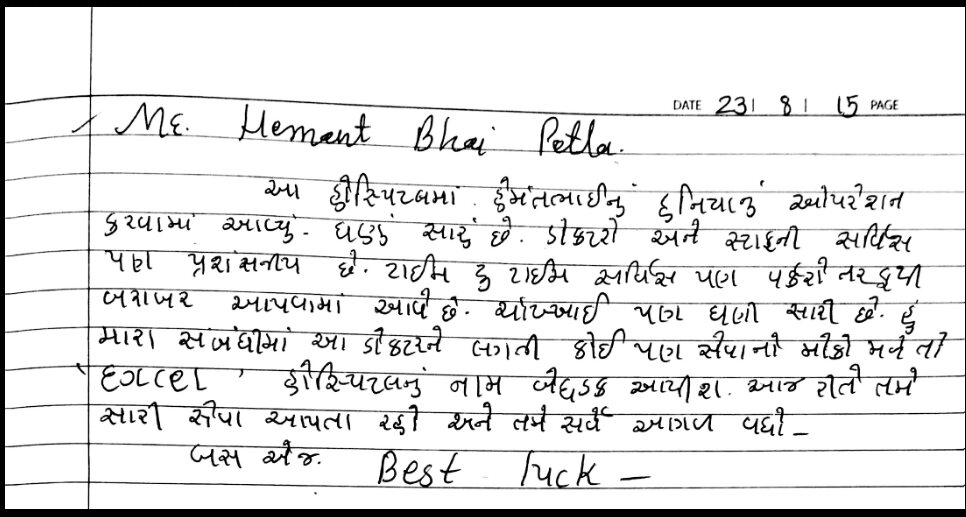 DATE 23| 8 | 15 PAGE
Mr. Hemant Bhai Petla.
આ હોસ્પિટલમાં હેમંતભાઈનું હર્નિયાનું ઓપરેશન
કરવામાં આવ્યું. ઘણું સારું છે. ડોકટરો અને સ્ટાફની સર્વિસ
પણ પ્રશંસનીય છે. ટાઈમ ટુ ટાઈમ સર્વિસ પણ વર્કરો તરફથી
બરાબર આપવામાં આવે છે. ચોખ્ખાઈ પણ ઘણી સારી છે. હું
મારા સંબંધીમાં આ ડોકટરને લગતી કોઈ પણ સેવાનો મોકો મળે તો
'Excel' હોસ્પિટલનું નામ બેધડક આપીશ. આજ રીતે તમે
સારી સેવા આપતા રહો અને તમે સર્વે આગળ વધો _
બસ એજ. Best luck —